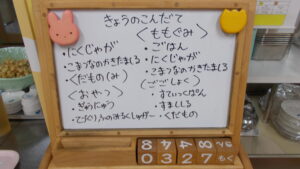 きょうのこんだて
<ももぐみ>
・ごはん
・にくじゃが
・こまつなのかきたまじる
(ごごしょく)
・すてぃっくぱん
・すましじる
・くだもの
・にくじゃが
・こまつなのかきたまじる
・くだもの(み)
<おやつ>
・ぎゅうにゅう
・てづくりふのみるくしゅがー
8 4 8 4
0 3 2 7 もく